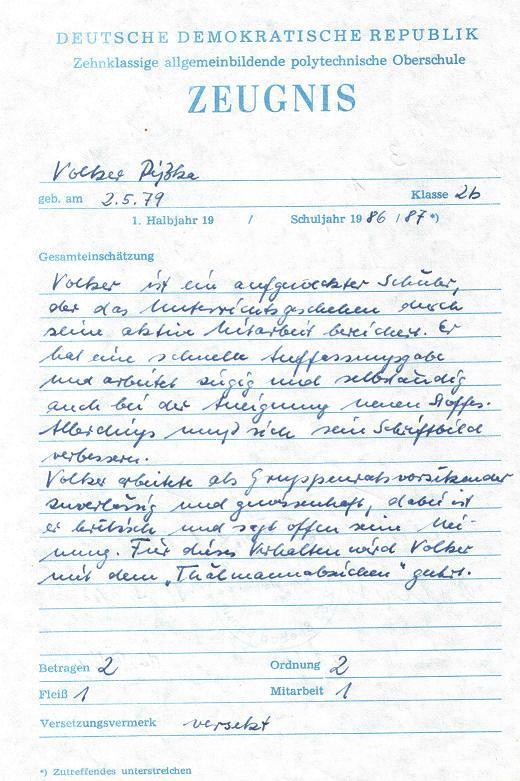 DEUTSCHE DEMOKRATISCHE REPUBLIK
Zehnklassige allgemeinbildende polytechnische Oberschule
ZEUGNIS
Volker
geb. am 2.5.79 Klasse 2b
1. Halbjahr 19 / Schuljahr 1986/87 *)
Gesamteinschätzung
Volker ist ein aufgeweckter Schüler,
der das Unterrichtsgeschehen durch
seine aktive Mitarbeit bereichert. Er
hat eine schnelle Auffassungsgabe
und arbeitet zügig und selbständig
auch bei der Aneignung neuen Stoffes.
Allerdings muß sich sein Schriftbild
verbessern.
Volker arbeitete als Gruppenratsvorsitzender
zuverlässig und gewissenhaft, dabei ist
er kritisch und sagt offen seine Mei-
nung. Für dieses Verhalten wird Volker
mit dem „Thälmannabzeichen" geehrt.
Betragen 2 Ordnung 2
Fleiß 1 Mitarbeit 1
Versetzungsvermerk versetzt
*) Zutreffendes unterstreichen